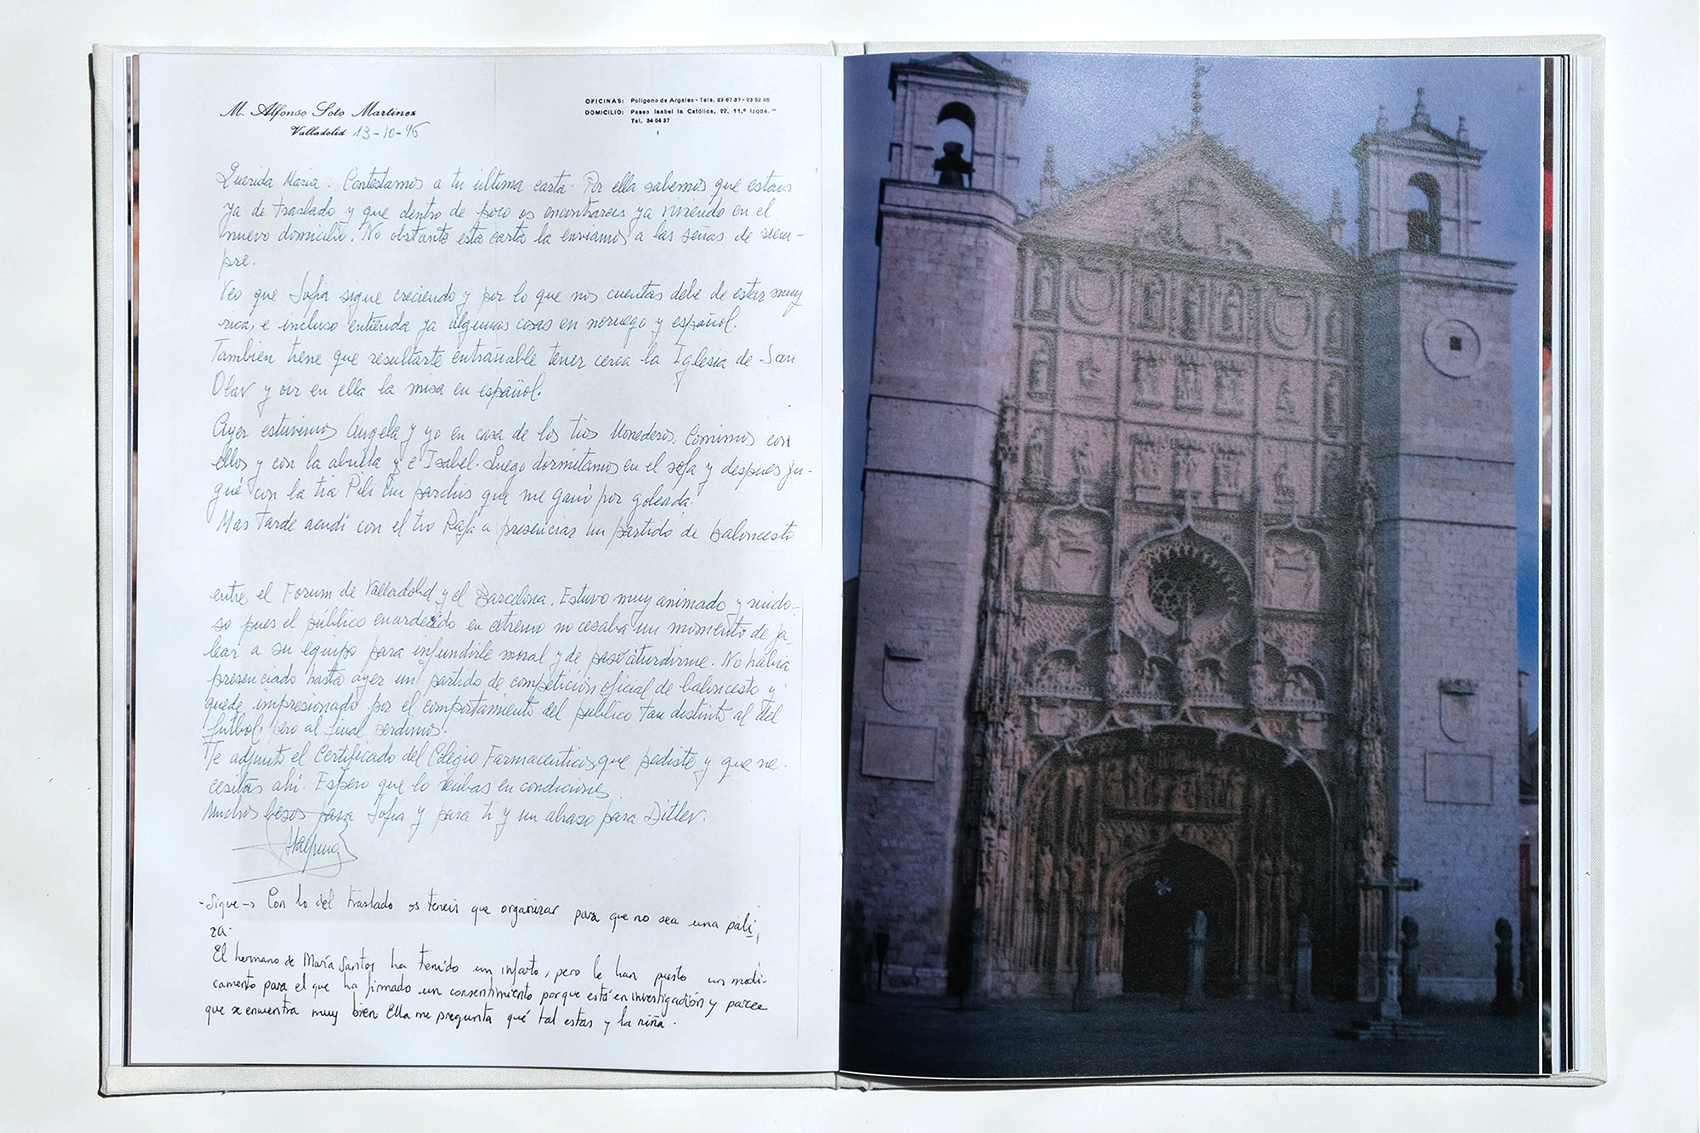 M. Alfonso Soto Martinez
OFICINAS: Polígono de Argales - Tels. 23 67 37 - 23 52 66
DOMICILIO: Paseo Isabel la Católica, 22, 11.º Izqda.
Tel. 34 04 37
Valladolid 13-10-96
Querida Maria: Contestamos a tu última carta. Por ella sabemos que estais
ya de traslado y que dentro de poco os encontrareis ya viviendo en el
nuevo domicilio. No obstante esta carta la enviamos a las señas de siem-
pre.
Veo que Sofia sigue creciendo y por lo que nos cuentas debe de estar muy
rica, e incluso entienda ya algunas cosas en noruego y español.
Tambien tiene que resultarte entrañable tener cerca la Iglesia de San
Olav y oir en ella la misa en español.
Ayer estuvimos Angela y yo en casa de los tios Monederos. Comimos con
ellos y con la abuela y e Isabel. Luego dormitamos en el sofa y despues ju-
gué con la tia Pili un parchis que me ganó por goleada.
Mas tarde acudí con el tio Rafa a presenciar un partido de baloncesto
entre el Forum de Valladolid y el Barcelona. Estuvo muy animado y ruido-
so pues el público enardecido en extremo no cesaba un momento de ja-
lear a su equipo para infundirle moral y de paso aturdirme. No habia
presenciado hasta ayer un partido de competición oficial de baloncesto y
quede impresionado por el comportamiento del público tan distinto al del
futbol; pero al final perdimos.
Te adjunto el Certificado del Colegio Farmaceuticos que pediste y que ne-
cesitas ahí. Espero que lo recibas en condiciones.
Muchos besos para Sofia y para ti y un abrazo para Ditlev.
-Sigue-> Con lo del traslado os teneis que organizar para que no sea una pali,
za.
El hermano de María Santos ha tenido un infarto, pero le han puesto un medi-
camento para el que ha firmado un consentimiento porque está en investigación y parece
que se encuentra muy bien. Ella me pregunta qué tal estas y la niña.